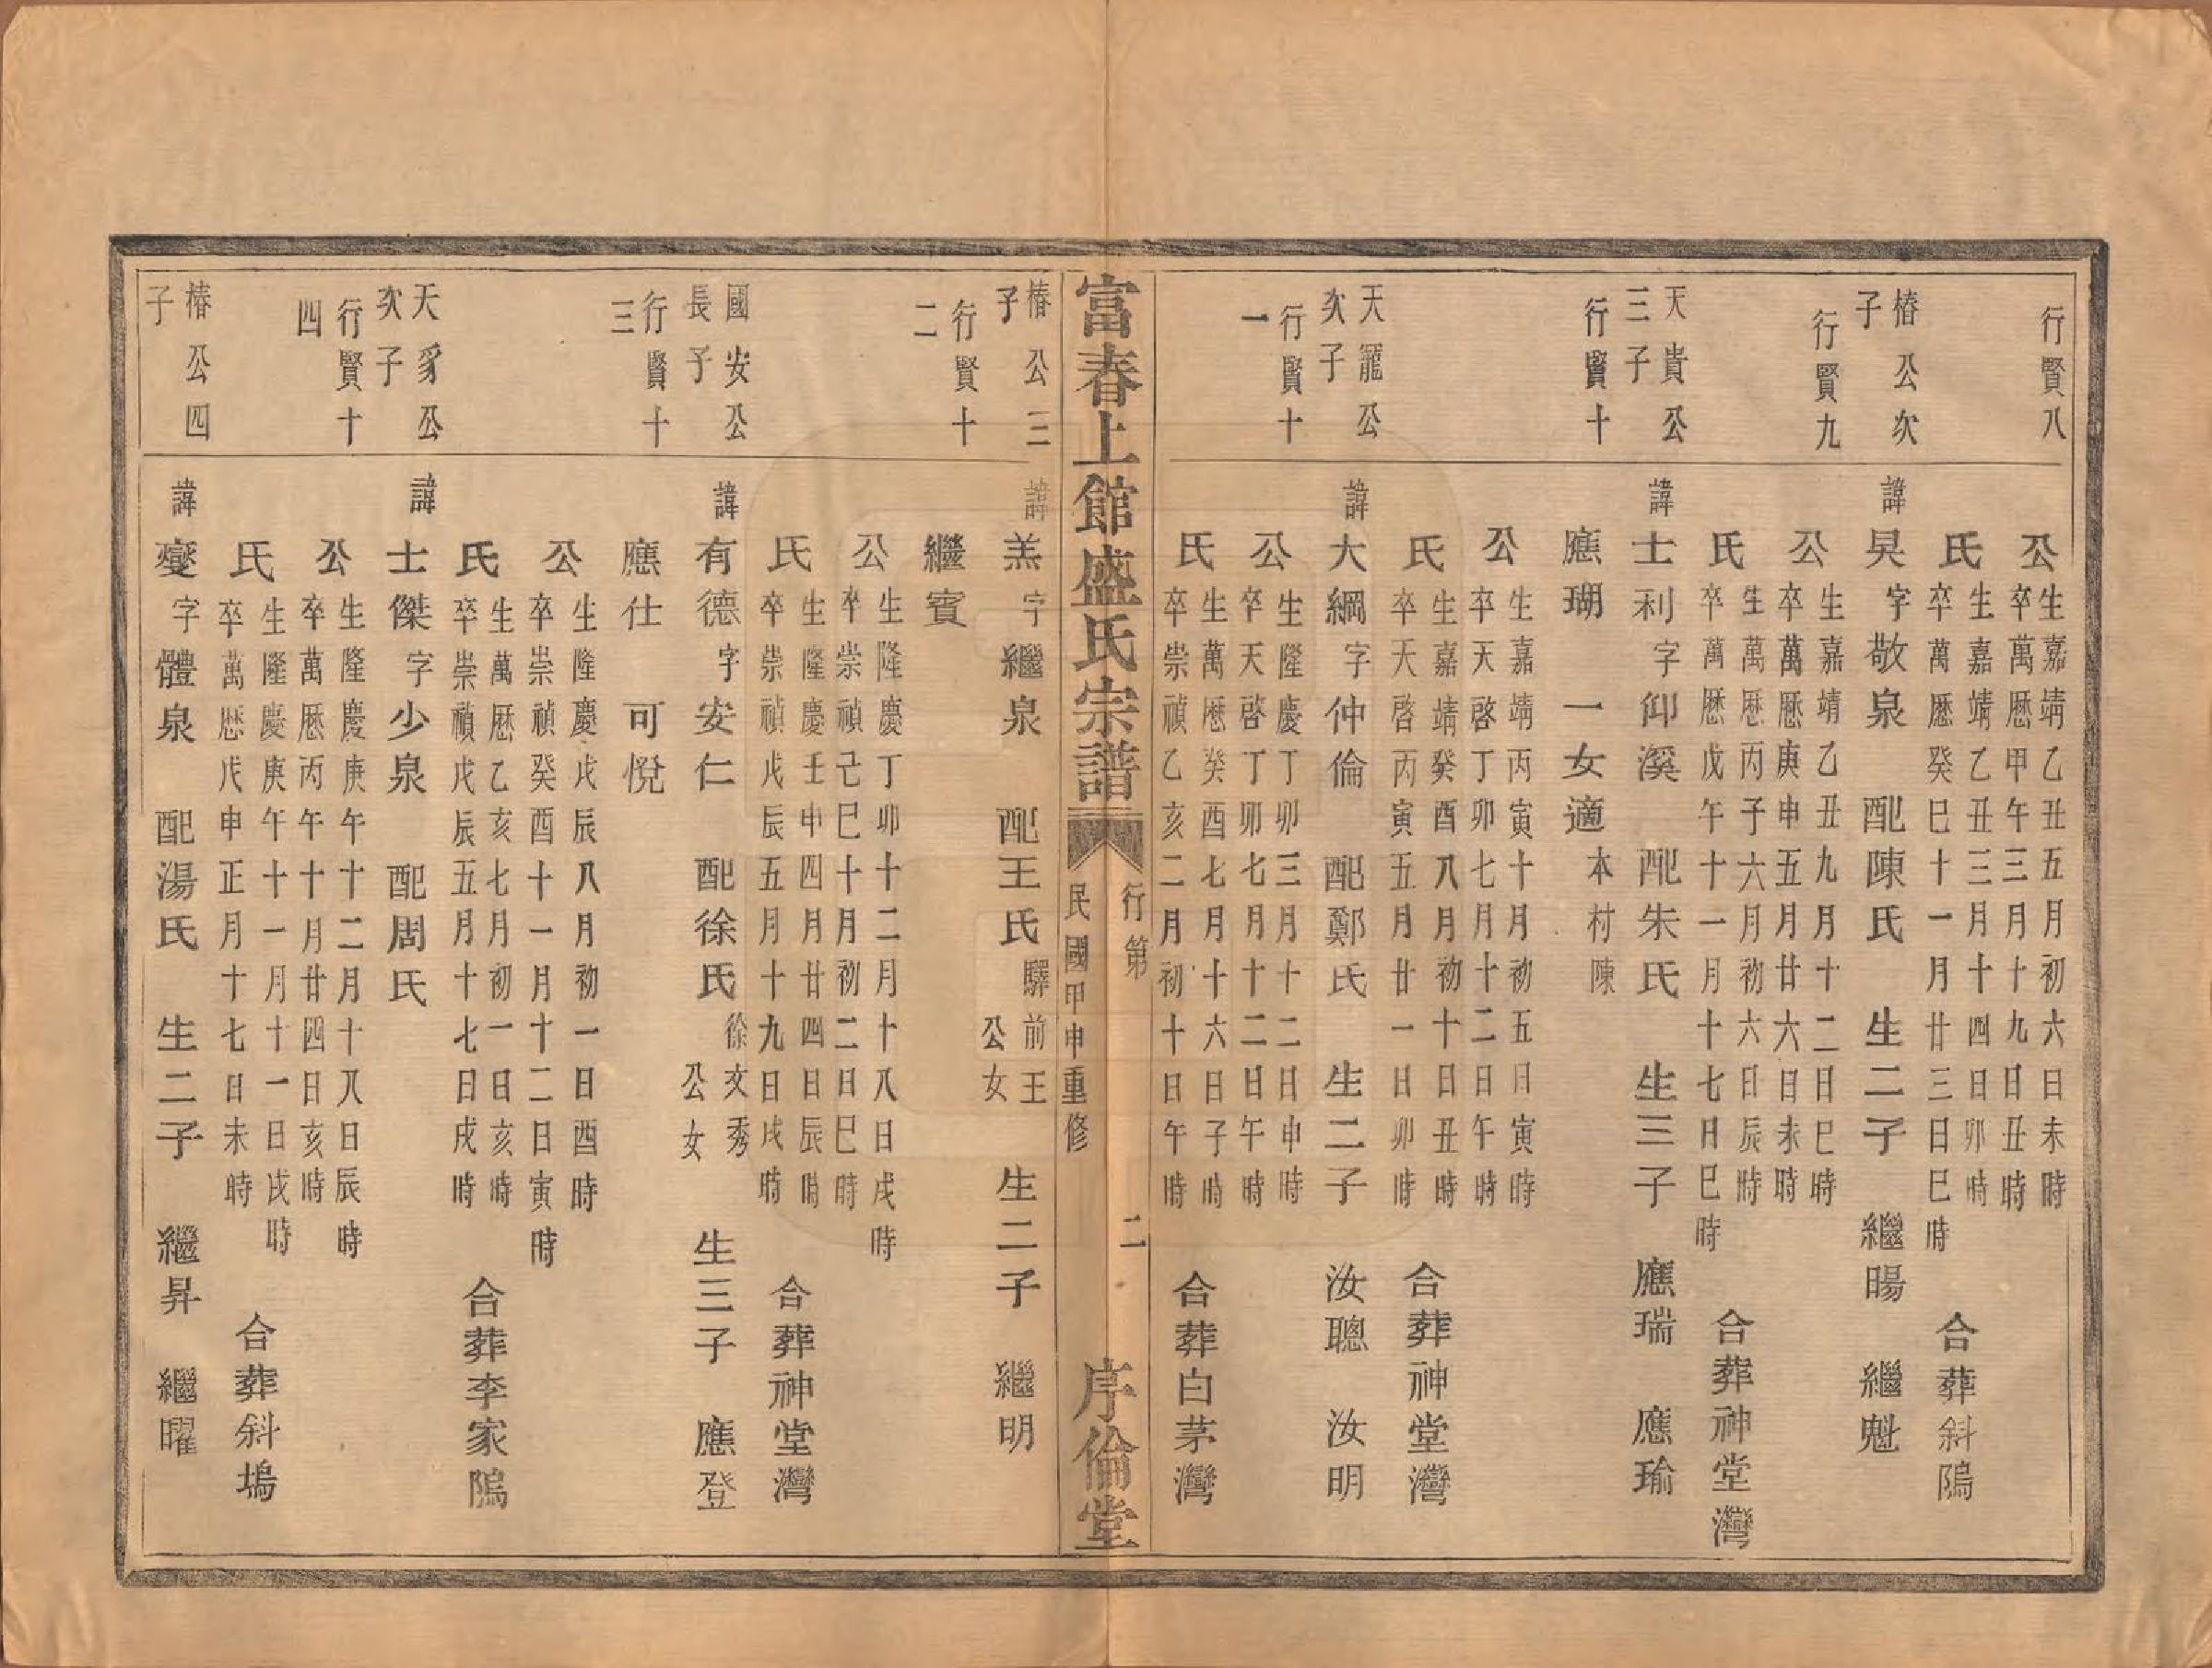 行賢八
公生嘉靖乙丑五月初六日未時
卒萬厯甲午三月十九日丑時
氏生嘉靖乙丑三月十四日卯時
卒萬厯癸巳十一月廿三日巳時
合葬斜隖
椿公次
子
諱昊字敬泉 配陳氏 生二子 繼暘 繼魁
行賢九
公生嘉靖乙丑九月十二日巳時
卒萬厯庚申五月廿六日未時
氏生萬厯丙子六月初六日辰時
卒萬厯戊午十一月十七日巳時
合葬神堂灣
天貴公
三子
諱士利字仰溪 配朱氏 生三子 應瑞 應瑜
行賢十
應瑚 一女適本村陳
公生嘉靖丙寅十月初五日寅時
卒天啓丁卯七月十二日午時
氏生嘉靖癸酉八月初十日丑時
卒天啓丙寅五月廿一日卯時
合葬神堂灣
天寵公
次子
諱大綱字仲倫 配鄭氏 生二子 汝聰 汝明
行賢十
一
公生隆慶丁卯三月十二日申時
卒天啓丁卯七月十二日午時
氏生萬厯癸酉七月十六日子時
卒崇禎乙亥二月初十日午時
合葬白茅灣
富春上館盛氏宗譜
行第
二
民國甲申重修
序倫堂
椿公三
子
諱羔字繼泉 配王氏驛前王
公女
生二子 繼明
行賢十
二
繼賓
公生隆慶丁卯十二月十八日戌時
卒崇禎己巳十月初二日巳時
氏生隆慶壬申四月廿四日辰時
卒崇禎戊辰五月十九日戌時
合葬神堂灣
國安公
長子
諱有德字安仁 配徐氏徐文秀
公女
生三子 應登
行賢十
三
應仕 可悅
公生隆慶戊辰八月初一日酉時
卒崇禎癸酉十一月十二日寅時
氏生萬厯乙亥七月初一日亥時
卒崇禎戊辰五月十七日戌時
合葬李家隖
天豸公
次子
諱士傑字少泉 配周氏
行賢十
四
公生隆慶庚午十二月十八日辰時
卒萬厯丙午十月廿四日亥時
氏生隆慶庚午十一月十一日戌時
卒萬厯戊申正月十七日未時
合葬斜塢
椿公四
子
諱燮字體泉 配湯氏 生二子 繼昇 繼曜